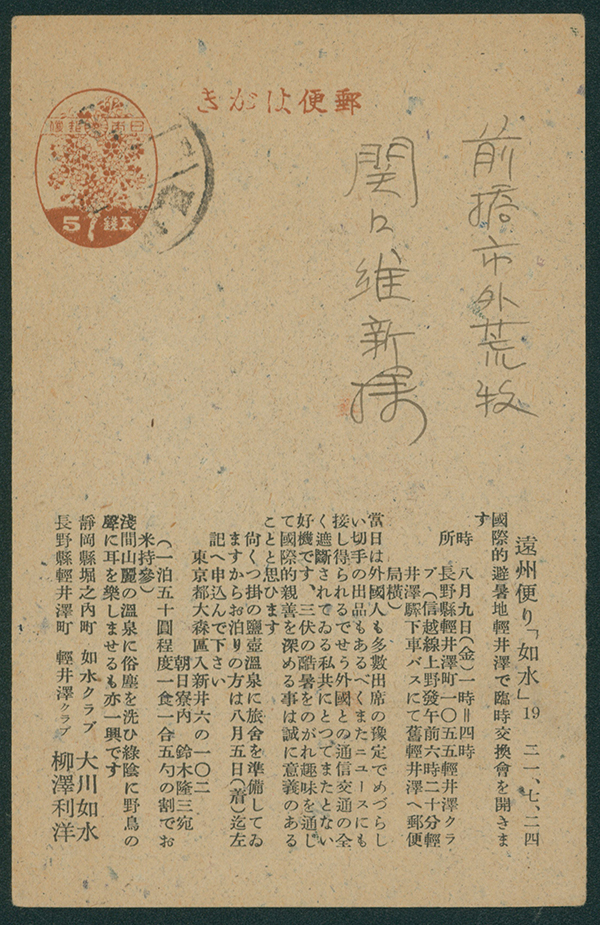 郵便はがき
五錢
5
前橋市外荒牧
関口維新様
遠州便り「如水」19　二一、七、二四
國際的避暑地輕井澤で臨時交換會を開きま
す
時　八月九日(金)一時＝四時
所　長野縣輕井澤町一〇五五輕井澤クラ
ブ(信越線上野發午前六時二十分輕
井澤驛下車バスにて舊輕井澤へ郵便
局横)
當日は外國人も多數出席の豫定でめづらし
い切手の出品もあるべくまたニュースにも
接し得られるでせう外國との通信交通の全
く遮斷されてゐる私共にとつてまたとない
好機です、三伏の酷暑をのがれ趣味を通し
て國際的親善を深める事は誠に意義のある
ことと思ひます
尙くつ掛の鹽壺溫泉に旅舍を準備してゐ
ますからお泊りの方は八月五日(着)迄左
記へ申込んで下さい
東京都大森區入新井六の一〇二
朝日寮内　鈴木隆三宛
(一泊五十圓程度一食一合五勺の割でお
米持參)
淺間山麗の溫泉に俗塵を洗ひ綠陰に野鳥の
聲に耳を樂しませるも亦一興です
靜岡縣堀之内町　如水クラブ　大川如水
長野縣輕井澤町　輕井澤クラブ　柳澤利洋